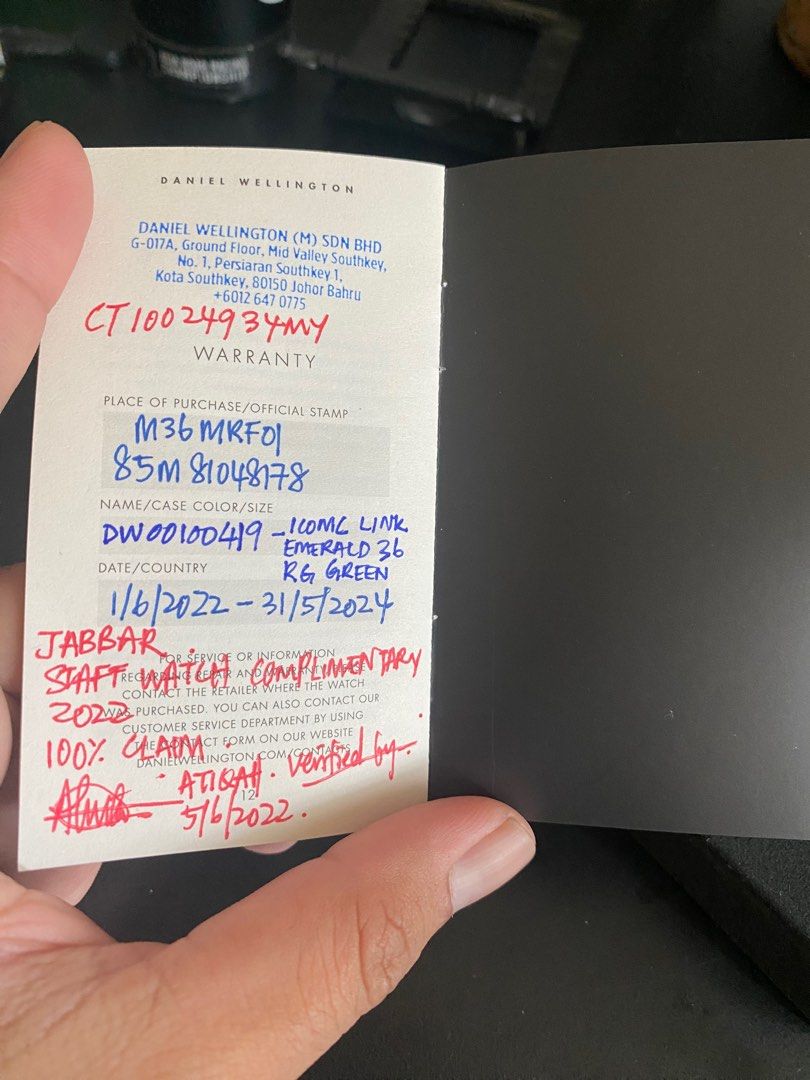 DANIEL WELLINGTON
DANIEL WELLINGTON (M) SDN BHD
G-017A, Ground Floor, Mid Valley Southkey,
No. 1, Persiaran Southkey 1,
Kota Southkey, 80150 Johor Bahru
+6012 647 0775
CT10024934MY
WARRANTY
PLACE OF PURCHASE/OFFICIAL STAMP
M36MRF01
85M81048178
NAME/CASE COLOR/SIZE
DW00100419 - ICONIC LINK
EMERALD 36
RG GREEN
DATE/COUNTRY
1/6/2022 - 31/5/2024
JABBAR.
FOR SERVICE OR INFORMATION
STAFF WATCH COMPLIMENTARY
REGARDING REPAIR AND WARRANTY PLEASE
CONTACT THE RETAILER WHERE THE WATCH
2022
WAS PURCHASED. YOU CAN ALSO CONTACT OUR
CUSTOMER SERVICE DEPARTMENT BY USING
100% CLAIM.
THE CONTACT FORM ON OUR WEBSITE
DANIELWELLINGTON.COM/CONTACTS
ATIQAH. verified by.
12
5/6/2022.